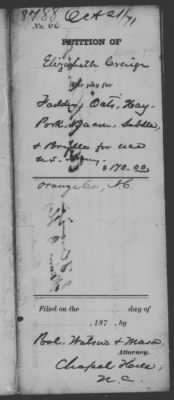 8788 Oct 21/71
No. 66
PETITION OF
Elizabeth
For pay for
Fodder, Oats, Hay
Pork, Bacon, Saddle,
& Bridle for use
U.S. Army.
$170.00
Orange Co, N.C.
Filed on the day of
, 187 , by
Pool, Watson & Mason,
Attorney.
Chapel Hill,
N.C.